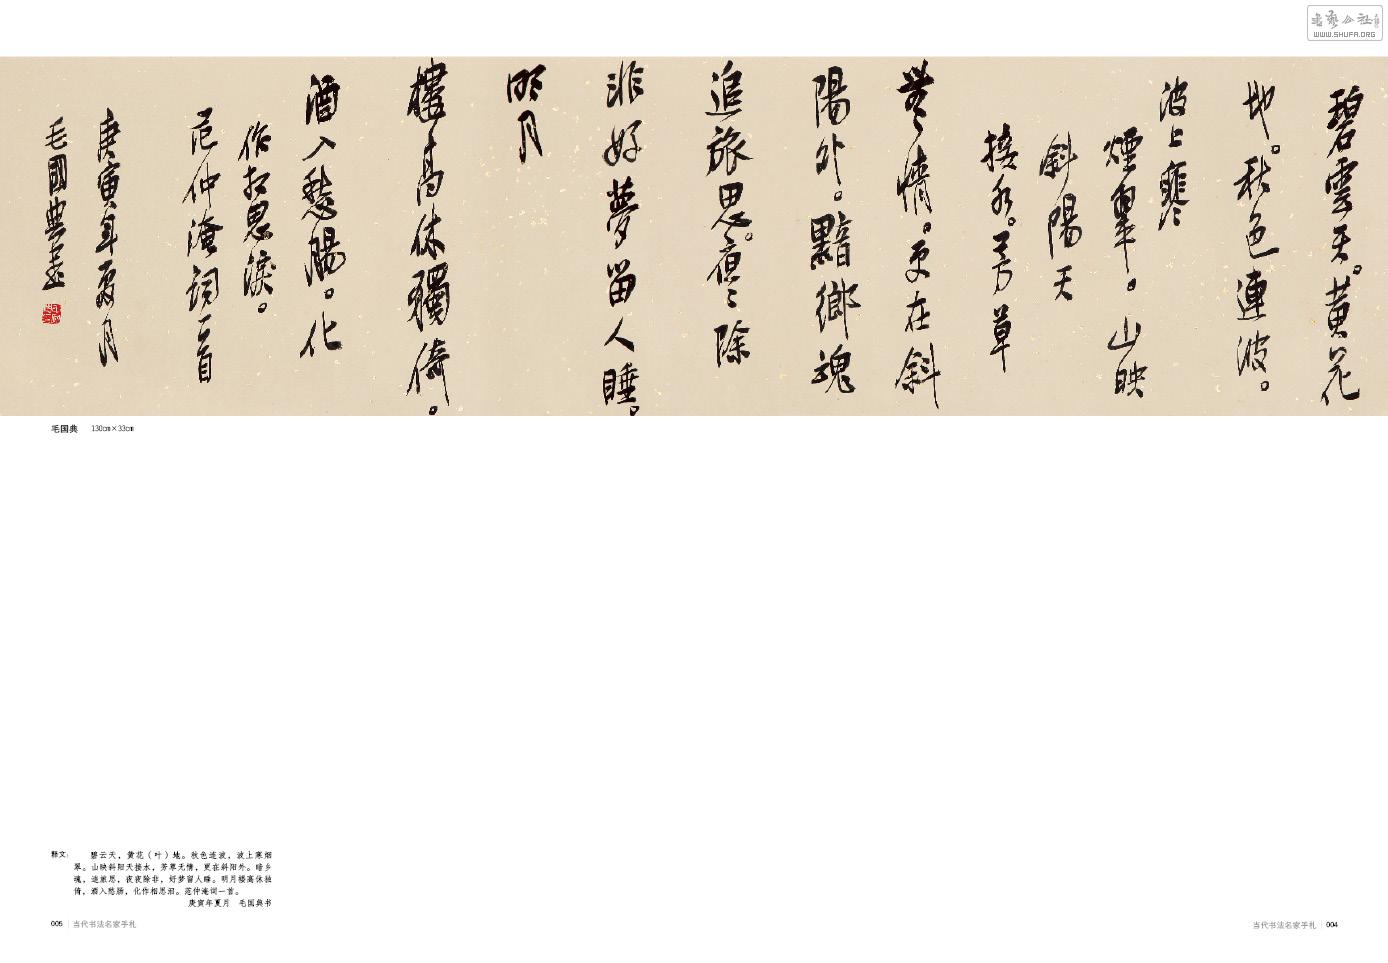 碧雲天。黄花
地。秋色連波。
波上寒
煙翠。山映
斜陽天
接水。芳草
無情。更在斜
陽外。黯鄉魂
追旅思。夜〻除
非好夢留人睡。
明月
樓高休獨倚。
酒入愁腸。化
作相思淚。
范仲淹詞一首
庚寅年夏月
毛國典書
毛国典 130cm×33cm
释文： 碧云天，黄花（叶）地。秋色连波，波上寒烟
翠。山映斜阳天接水，芳草无情，更在斜阳外。暗乡
魂，追旅思，夜夜除非，好梦留人睡。明月楼高休独
倚，酒入愁肠，化作相思泪。范仲淹词一首。
庚寅年夏月 毛国典书
005 当代书法名家手札
当代书法名家手札 004
WWW.SHUFA.ORG